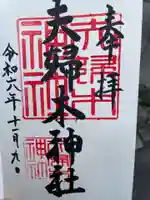 奉拝
夫婦木神社
令和六年十一月九日